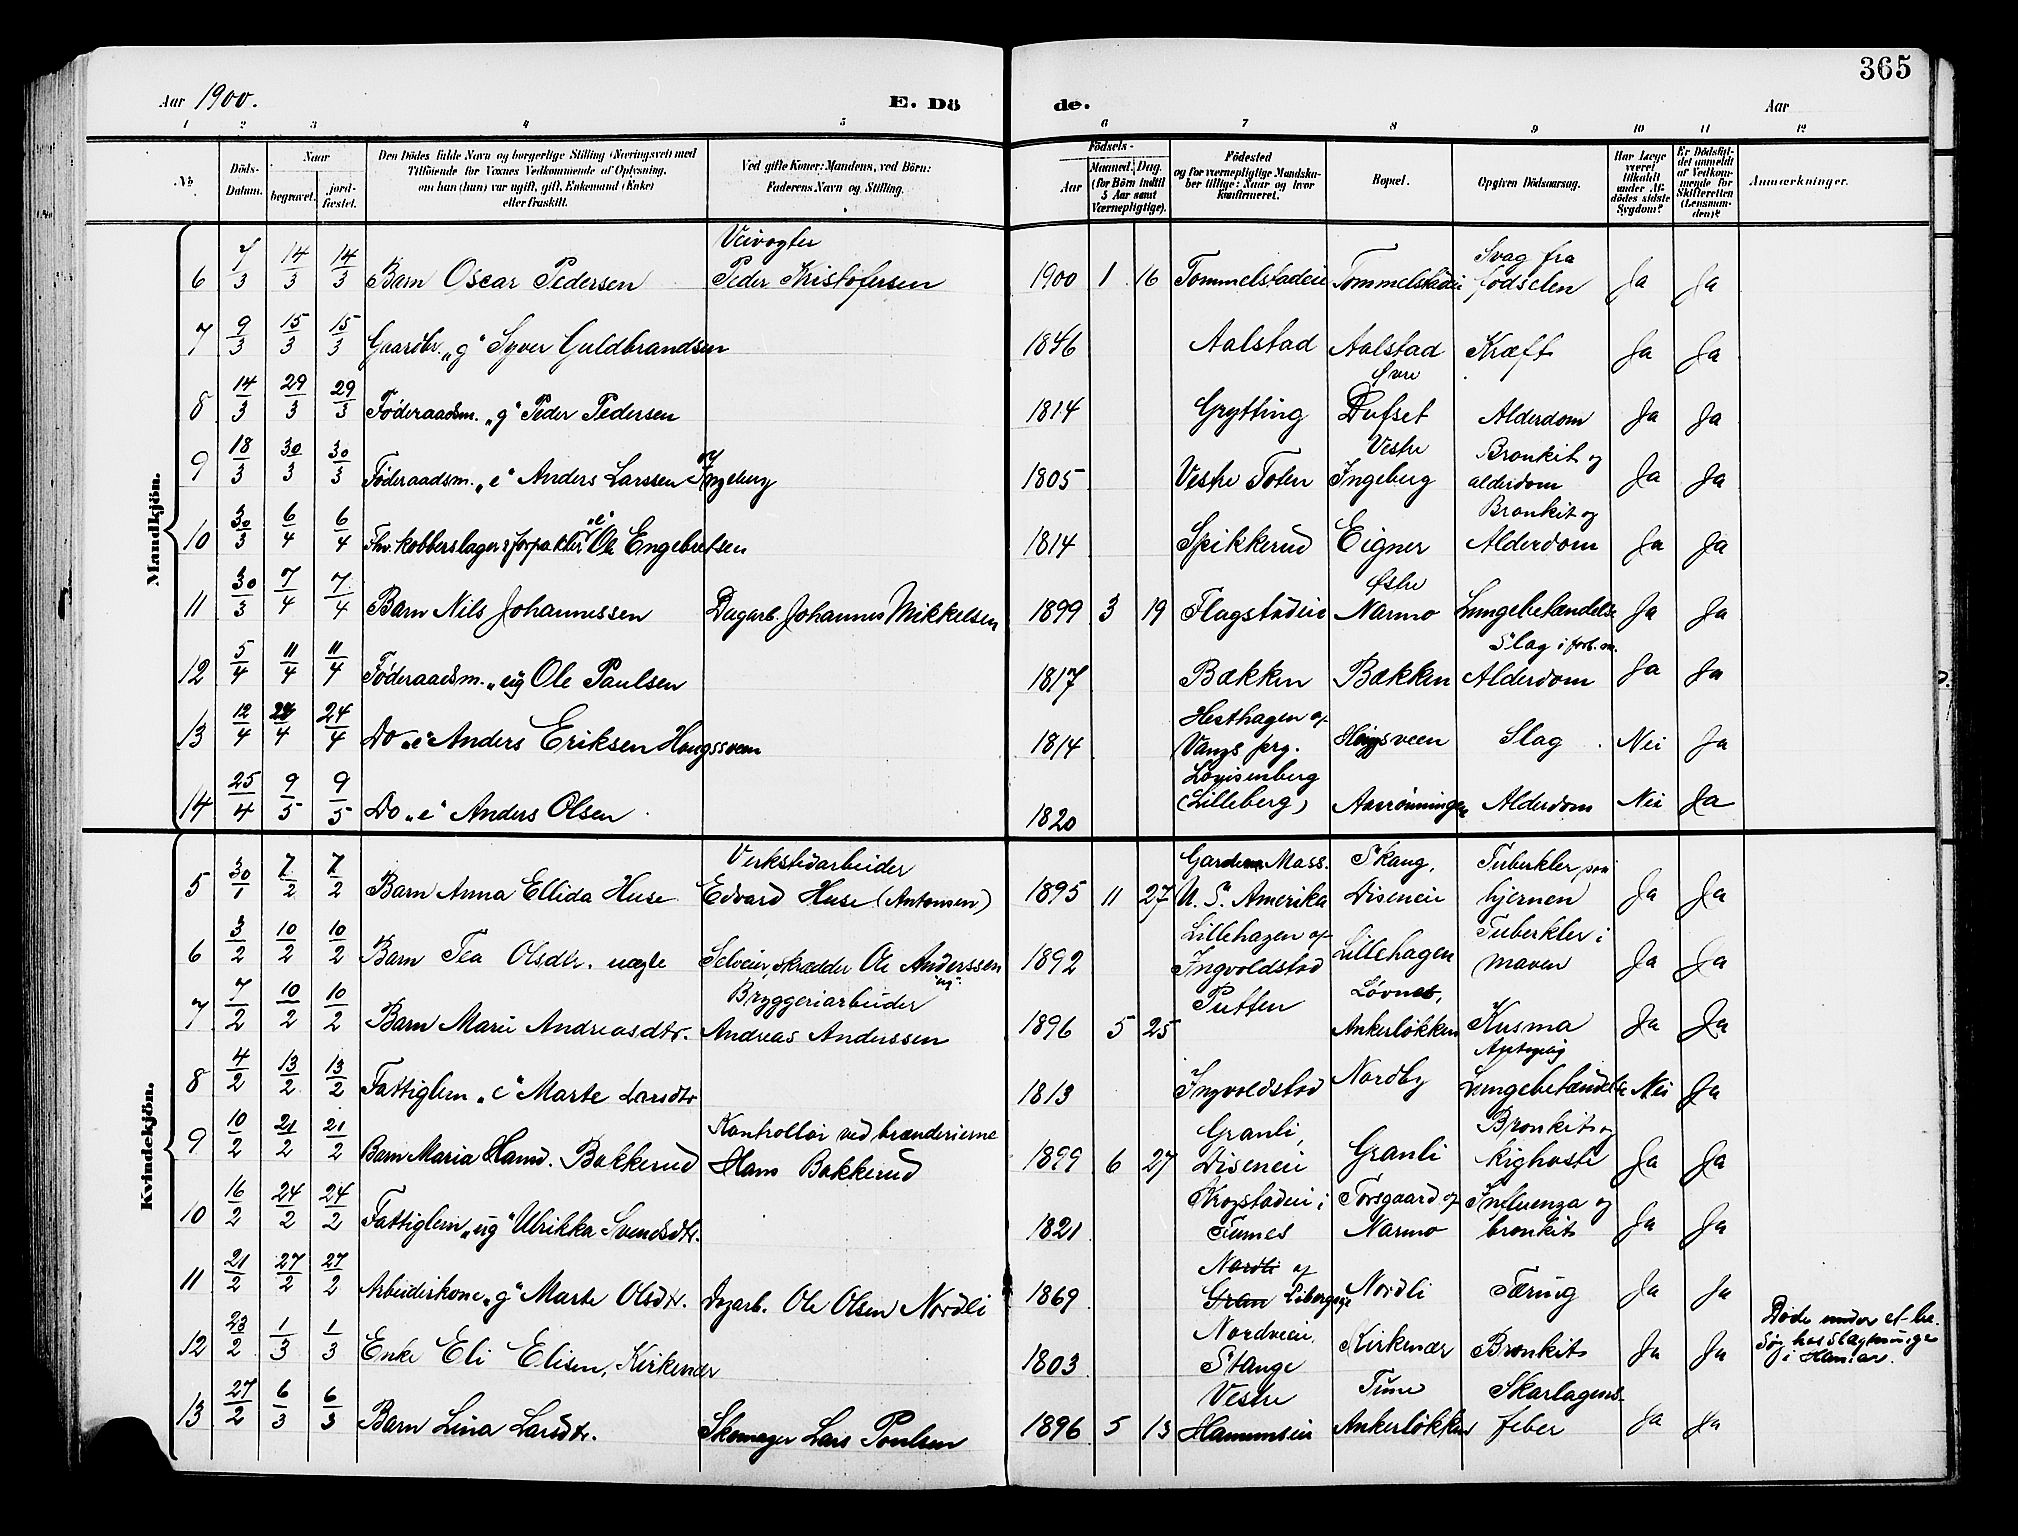 365
Aar 1900. E. Dö de. Aar
1 2 3 4 5 6 7 8 9 10 11 12
No. Döds-Datum. Naar begravet. jord-fæstet. Den Dödes fulde Navn og borgerlige Stilling (Næringsvei) med Tilföiende for Voxnes Vedkommende af Oplysning, om han (hun) var ugift, gift, Enkemand (Enke) eller fraskilt. Ved gifte Koner: Mandens, ved Börn: Faderens Navn og Stilling. Födsels- Aar Maaned. Dag. (for Börn indtil 5 Aar samt Værnepligtige). Födested og for værnepligtige Mandskaber tillige: Naar og hvor konfirmeret. Bopæl. Opgiven Dödsaarsag. Har Læge været tilkaldt under Afdödes sidste Sygdom? Er Dödsfaldet anmeldt af Vedkommende for Skifteretten (Lensmanden)? Anmærkninger.
Mandkjön.
6 7/3 14/3 14/3 Barn Oscar Pedersen Veivogter Peder Kristofersen 1900 1 16 Tommelstadeie Tommelstadeie Svag fra fødselen Ja Ja
7 9/3 15/3 15/3 Gaardbr. „g“ Syver Guldbrandsen 1846 Aalstad Aalstad Kræft Ja Ja
8 14/3 29/3 29/3 Føderaadsm. „g“ Peder Pedersen 1814 Grytting Øvre Dufset Alderdom Ja Ja
9 18/3 30/3 30/3 Føderaadsm. „e“ Anders Larssen Ingeberg 1805 Vestre Toten Vestre Ingeberg Bronkit og alderdom Ja Ja
10 30/3 6/4 6/4 Fhv. kobberslager & forpakter „e“ Ole Engebretsen 1814 Spikkerud Eigner Bronkit og Alderdom Ja Ja
11 30/3 7/4 7/4 Barn Nils Johannessen Dagarb. Johannes Mikkelsen 1899 3 19 Flagstadeie Østre Narmo Lungebetændelse Ja Ja
12 5/4 11/4 11/4 Føderaadsm. „eig Ole Paulsen 1817 Bækken Bækken Slag i forb. m. Alderdom Ja Ja
13 12/4 24/4 24/4 Do „e“ Anders Eriksen Haugsveen 1814 Hesthagen af Vangs prg. Haugsveen Slag Nei Ja
14 25/4 9/5 9/5 Do „e“ Anders Olsen 1820 Lovisenberg (Lilleberg) Aasrønningen Alderdom Nei Ja
Kvindekjön.
5 30/1 7/2 7/2 Barn Anna Ellida Huse Verkstedarbeider Edvard Huse (Antonsen) 1895 11 27 Gardern Mass. U. S. Amerika Skaug, Diseneie Tuberkler paa hjernen Ja Ja
6 3/2 10/2 10/2 Barn Tea Olsdtr. uægte Selveier skrædder Ole Anderssen ug. 1892 Lillehagen af Ingvoldstad Lillehagen Tuberkler i maven Ja Ja
7 7/2 10/2 10/2 Barn Marie Andreasdtr. Bryggeriarbeider Andreas Anderssen 1896 5 25 Putten Løvnes, Ankerløkken Kusma Ja Ja
8 4/2 13/2 13/2 Fattiglem „e“ Marte Larsdtr 1813 Ingvoldstad Nordby Lungebetændelse Nei Ja
9 10/2 21/2 21/2 Barn Maria Hansd. Bakkerud Kontrollør ved brænderierne Hans Bakkerud 1899 6 27 Granli, Diseneie Granli Bronkit og kighoste Ja Ja
10 16/2 24/2 24/2 Fattiglem „ug“ Ulrikka Svendsdtr. 1821 Krogstadeie i Furnes Torsgaard af Narmo Influenza og bronkit Ja Ja
11 21/2 27/2 27/2 Arbeiderkone „g“ Marte Olsdtr. Dagarb. Ole Olsen Nordli 1869 Nordli af Gran Libergeie Nordli Tæring Ja Ja
12 23/2 1/3 1/3 Enke Eli Elisen, Kirkenær 1803 Nordveie, Stange Kirkenær Bronkit Ja Ja Døde under et besøg hos Slagter i Hamar.
13 27/2 6/3 6/3 Barn Lina Larsdtr. Skomager Lars Poulsen 1896 5 13 Vestre Hammseie Tune Ankerløkken Skarlagensfeber Ja Ja